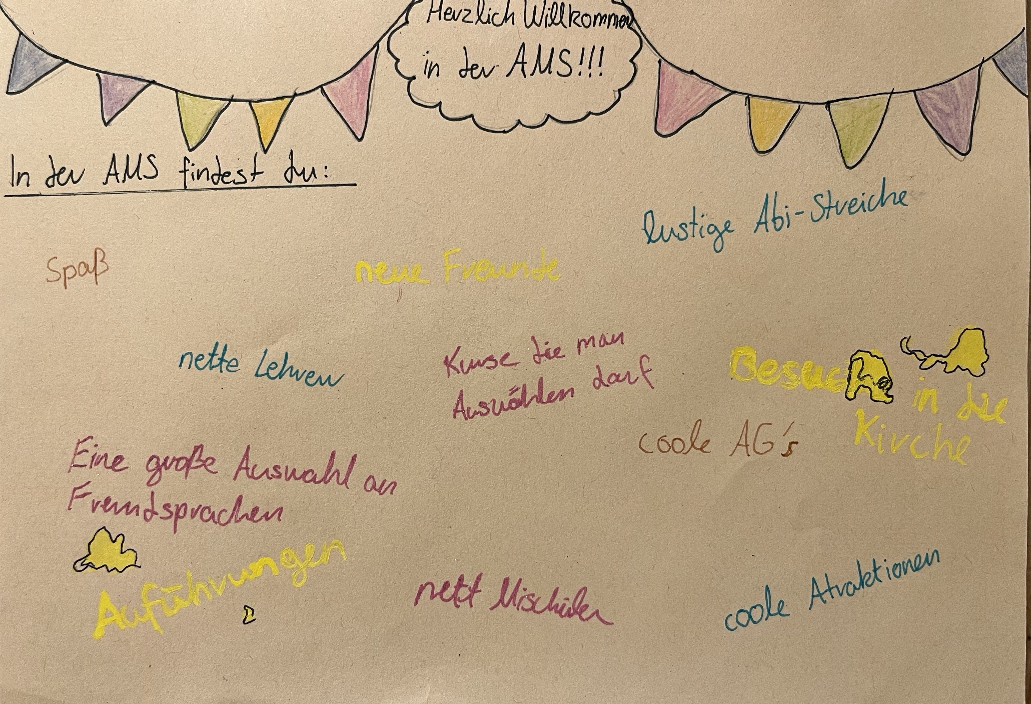 Herzlich Willkommen
in der AMS!!!
In der AMS findest du:
lustige Abi-Streiche
Spaß
neue Freunde
nette Lehrer
Kurse die man
Auswählen darf
Besuche in die
Kirche
coole AG's
Eine große Auswahl an
Fremdsprachen
Auführungen
nett Mischüler
coole Atraktionen